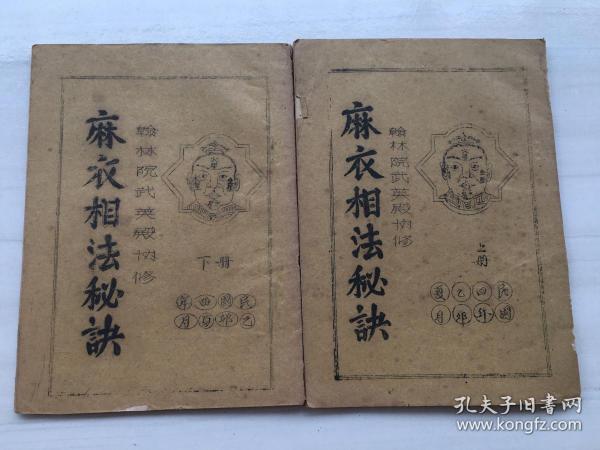 麻衣相法秘訣
翰林院武英殿协修
下册
民國四年
乙卯夏月
麻衣相法秘訣
翰林院武英殿协修
上册
民國
四年
乙卯
夏月
孔夫子旧书网
www.kongfz.com